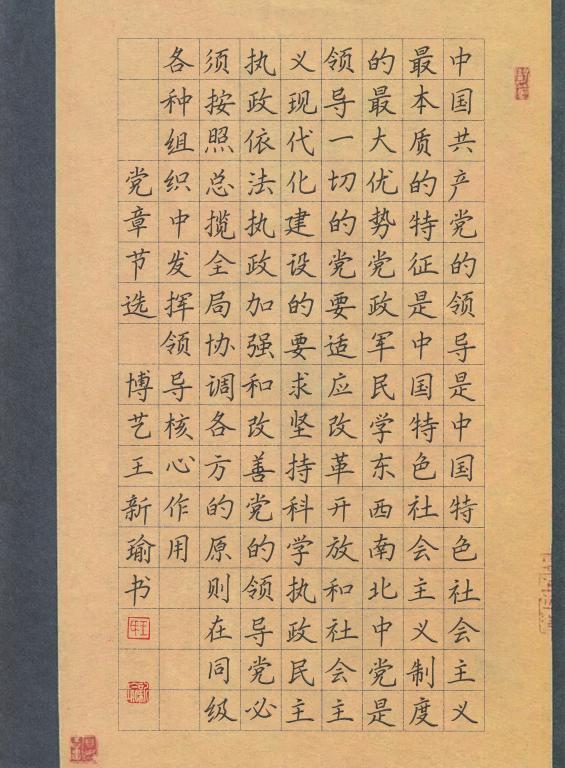 中国共产党的领导是中国特色社会主义
最本质的特征是中国特色社会主义制度
的最大优势党政军民学东西南北中党是
领导一切的党要适应改革开放和社会主
义现代化建设的要求坚持科学执政民主
执政依法执政加强和改善党的领导党必
须按照总揽全局协调各方的原则在同级
各种组织中发挥领导核心作用
党章节选 博艺王新瑜书